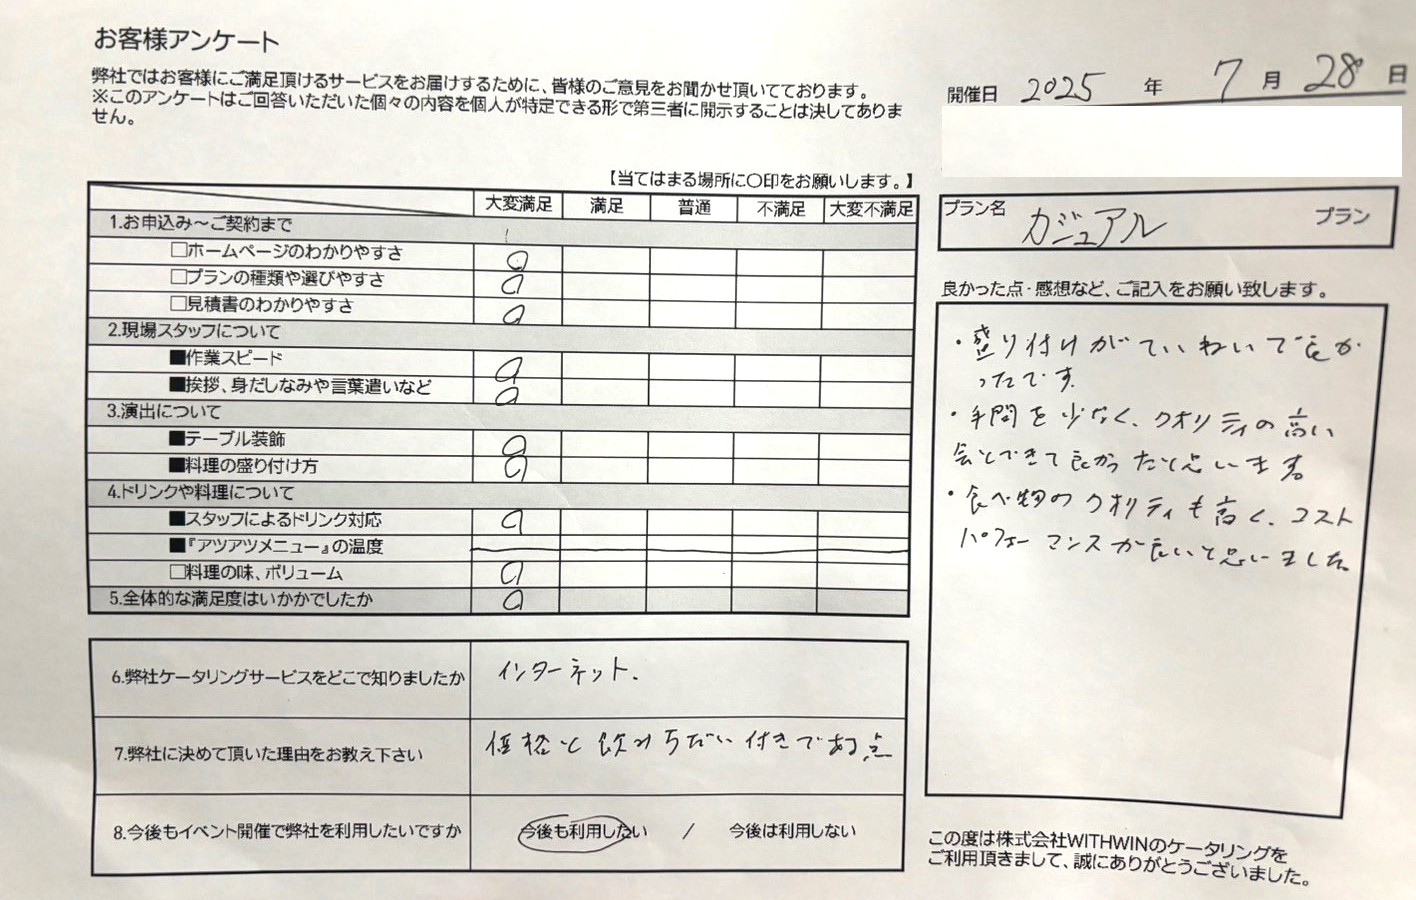 お客様アンケート
弊社ではお客様にご満足頂けるサービスをお届けするために、皆様のご意見をお聞かせ頂いてております。
※このアンケートはご回答いただいた個々の内容を個人が特定できる形で第三者に開示することは決してありま
せん。
開催日 2025 年 7 月 28 日
【当てはまる場所に〇印をお願いします。】
大変満足 満足 普通 不満足 大変不満足
1.お申込み～ご契約まで
□ホームページのわかりやすさ
□プランの種類や選びやすさ
□見積書のわかりやすさ
2.現場スタッフについて
■作業スピード
■挨拶、身だしなみや言葉遣いなど
3.演出について
■テーブル装飾
■料理の盛り付け方
4.ドリンクや料理について
■スタッフによるドリンク対応
■『アツアツメニュー』の温度
□料理の味、ボリューム
5.全体的な満足度はいかかでしたか
6.弊社ケータリングサービスをどこで知りましたか インターネット.
7.弊社に決めて頂いた理由をお教え下さい 価格と飲みちだい付きである点
8.今後もイベント開催で弊社を利用したいですか 今後も利用したい / 今後は利用しない
プラン名 カジュアル プラン
良かった点・感想など、ご記入をお願い致します。
・盛り付けがていねいで良か
ったです.
・手間を少なく、クオリティの高い
会とできて良かったと思います。
・食べ物のクオリティも高く、コスト
パフォーマンスが良いと思いました。
この度は株式会社WITHWINのケータリングを
ご利用頂きまして、誠にありがとうございました。